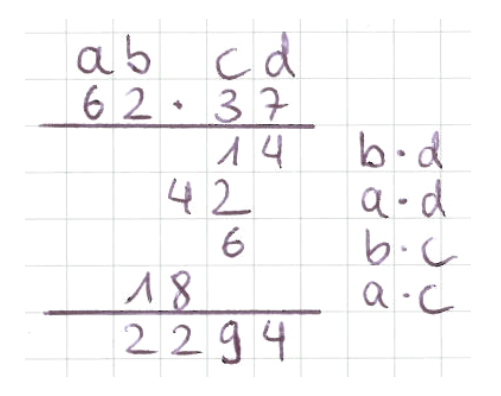 ab cd
62 · 37
14 b·d
42 a·d
6 b·c
18 a·c
2294